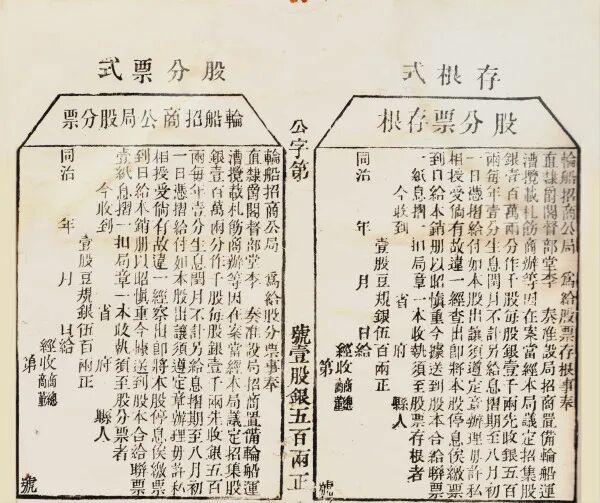 存根式
股分票存根
輪船招商公局 為給股票存根事奉
直隸爵閣督部堂李 奏准設局招商置備輪船運
漕攬載札飭商辦等因在案當經本局議定招集股
銀壹百萬兩分作千股每股銀壹千兩先收銀五百
兩每年壹分生息閏月不計另給息摺期至八月初
一日憑摺給付如本股出讓須遵定章辦理毋許私
相授受倘有故違一經查出即將本股停息俟繳票
到日給本銷册以昭慎重今據送到股本合給聯票
一紙息摺一扣局章一本收執須至股票存根者
今收到 省 府 縣人
壹股豆規銀伍百兩正
同治 年 月 日給
經收商總商董
第 號
公字第 號壹股銀五百兩正
股分票式
輪船招商公局股分票
輪船招商公局 為給股分票事奉
直隸爵閣督部堂李 奏准設局招商置備輪船運
漕攬載札飭商辦等因在案當經本局議定招集股
銀壹百萬兩分作千股每股銀壹千兩先收銀五百
兩每年壹分生息閏月不計另給息摺期至八月初
一日憑摺給付如本股出讓須遵定章辦理毋許私
相授受倘有故違一經察出即將本股停息俟繳票
到日給本銷册以昭慎重今據送到股本合給聯票
壹紙息摺一扣局章一本收執須至股分票者
今收到 省 府 縣人
壹股豆規銀伍百兩正
同治 年 月 日給
經收商總商董
第 號